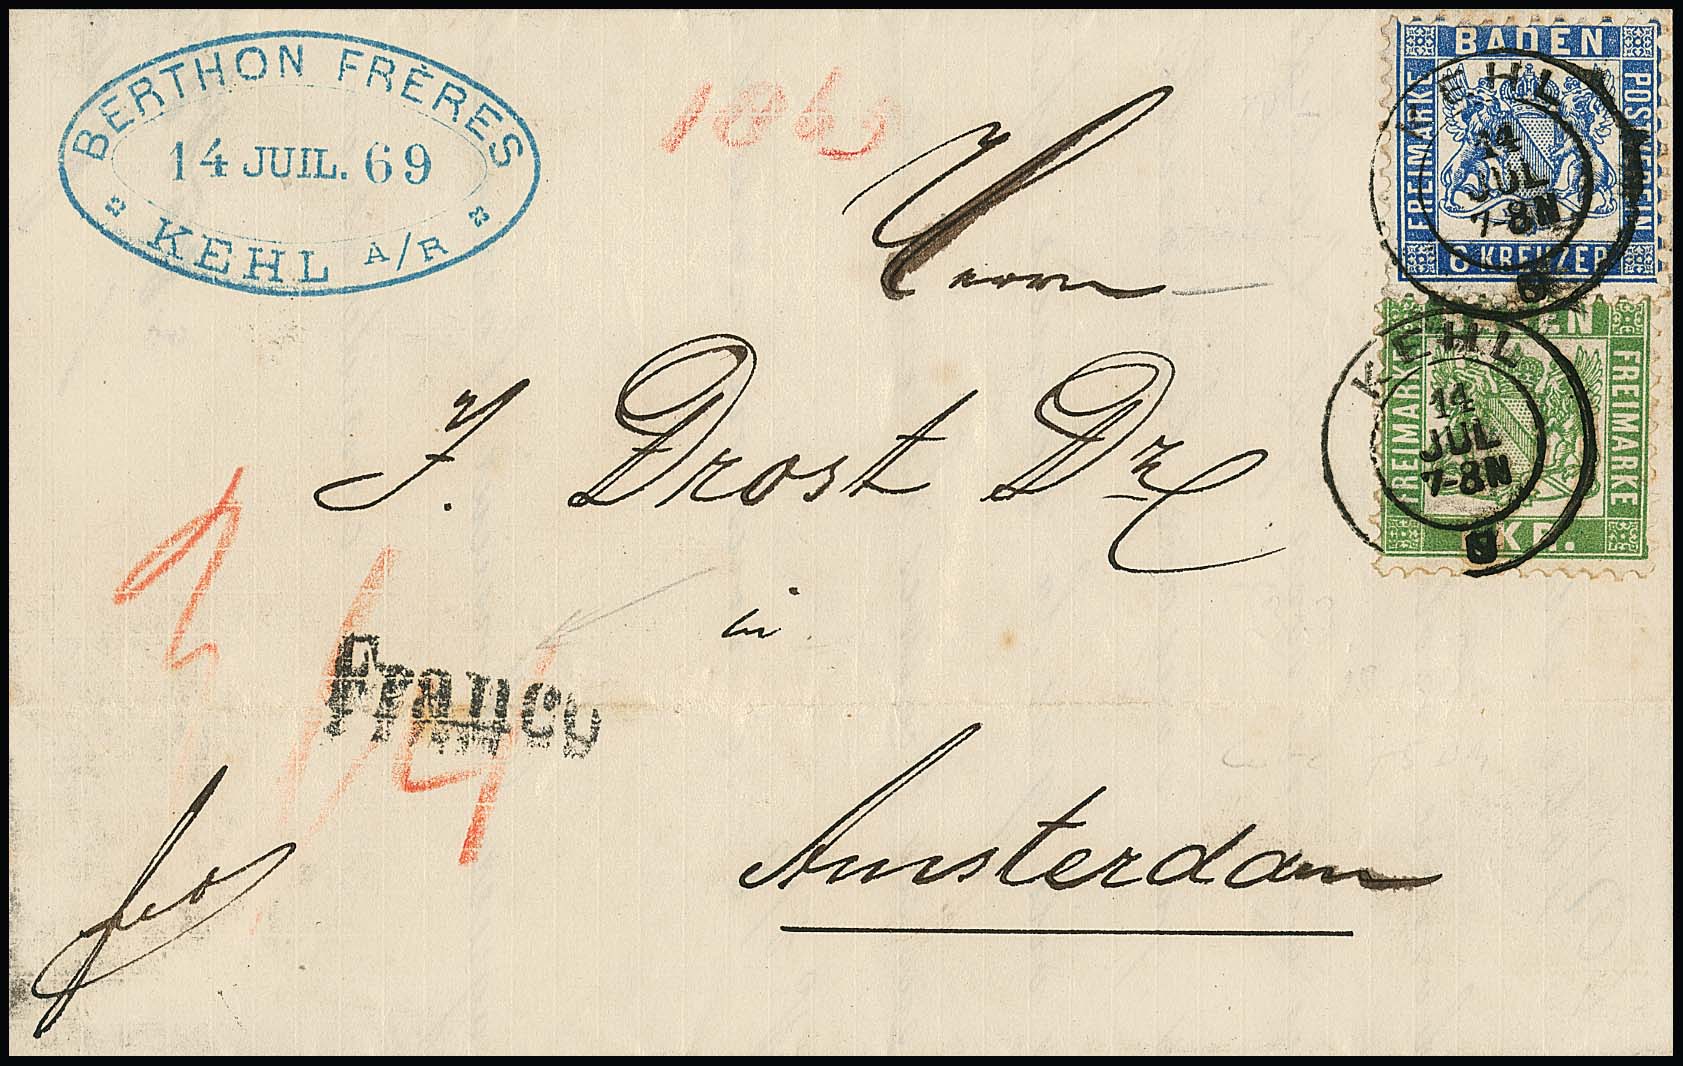 BERTHON FRÈRES
14 JUIL. 69
KEHL A/R
1869
BADEN
FREIMARKE
POSTVEREIN
6 KREUZER
KEHL
14
JUL
7-8N
FREIMARKE
FREIMARKE
KR.
KEHL
14
JUL
7-8N
Herrn
J. Drost Dz
in
Amsterdam
Franco
fco